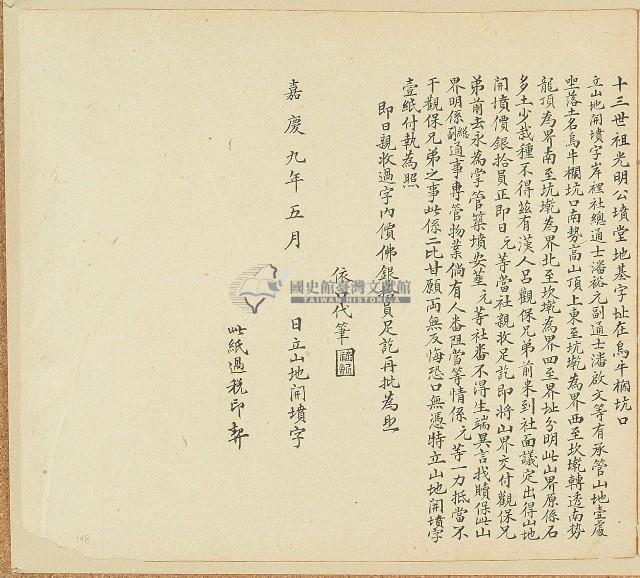 十三世祖光明公墳堂地基字址在烏牛欄坑口
立山地開墳字岸裡社總通士潘裕元副通士潘啟文等有承管山地壹處
坐落土名烏牛欄坑口南勢高山頂上東至坑墘為界西至坎墘轉透南勢
龍頂為界南至坑墘為界北至坎墘為界四至界址分明此山界原係石
多土少栽種不得茲有漢人呂觀保兄弟前來到社面議定出得山地
開墳價銀拾員正即日元等當社親收足訖即將山界交付觀保兄
弟前去永為掌管築墳安葬元等社番不得生端異言找贖保此山
界明係總副通事專管物業倘有人番阻當等情係元等一力抵當不
干觀保兄弟之事此係二比甘願兩無反悔恐口無憑特立山地開墳字
壹紙付執為照
即日親收過字內價佛銀拾員足訖再批為照
依口代筆
嘉慶九年五月 日立山地開墳字
此紙過稅印契
國史館臺灣文獻館
TAIWAN HISTORICA
148